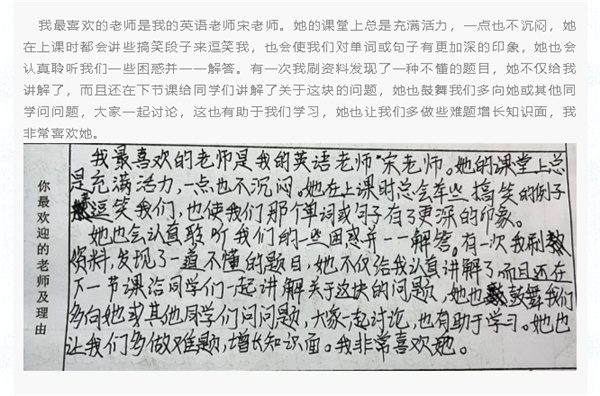 我最喜欢的老师是我的英语老师宋老师。她的课堂上总是充满活力，一点也不沉闷，她
在上课时都会讲些搞笑段子来逗笑我，也会使我们对单词或句子有更加深的印象，她也会
认真聆听我们一些困惑并一一解答。有一次我刷资料发现了一种不懂的题目，她不仅给我
讲解了，而且还在下节课给同学们讲解了关于这块的问题，她也鼓舞我们多向她或其他同
学问问题，大家一起讨论，这也有助于我们学习，她也让我们多做些难题增长知识面，我
非常喜欢她。
你最欢迎的老师及理由
我最喜欢的老师是我的英语老师"宋老师。她的课堂上总
是充满活力，一点也不沉闷。她在上课时总会举些搞笑的例子
逗笑我们，也使我们那个单词或句子有了更深的印象。
她也会认真聆听我们的一些困惑并一一解答。有一次我刷
资料，发现了一道不懂的题目，她不仅给我认真讲解了，而且还在
下一节课给同学们一起讲解关于这块的问题，她也鼓舞我们
多向她或其他同学们问问题，大家一起讨论，也有助于学习。她也
让我们多做难题，增长知识面。我非常喜欢她。